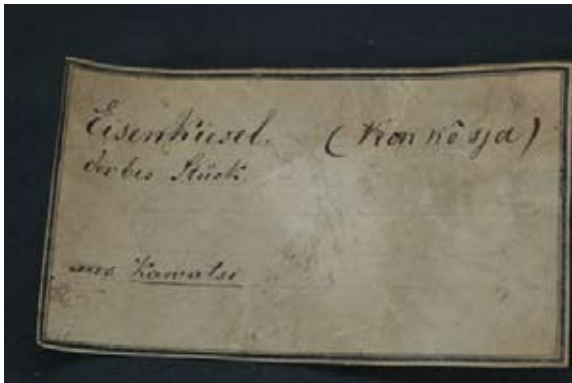 Eisenkiesel. (Konkôsja)
derbes Stück.
aus Kawatsu